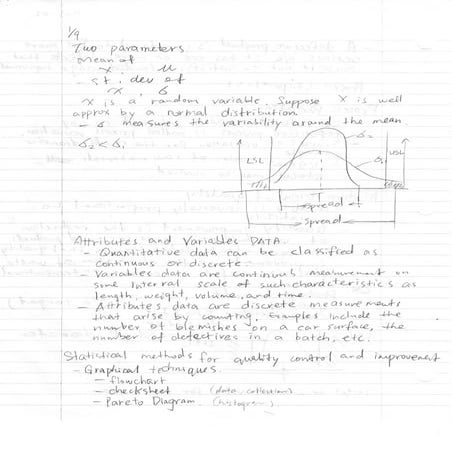 1/9
Two parameters
Mean of
X, μ
- st. dev of
X, σ
X is a random variable. Suppose X is well
approx by a normal distribution.
- σ measures the variability around the mean
σ₂ < σ₁
σ₂
σ₁
LSL
USL
T
spread
spread
Attributes and Variables DATA.
- Quantitative data can be classified as
continuous or discrete.
- Variables data are continuous measurement on
some interval scale of such characteristics as
length, weight, volume, and time.
- Attributes data are discrete measurements
that arise by counting. Examples include the
number of blemishes on a car surface, the
number of defectives in a batch, etc.
Statistical methods for quality control and improvement
- Graphical techniques.
- flowchart
- checksheet (data collection)
- Pareto Diagram. (histogram)